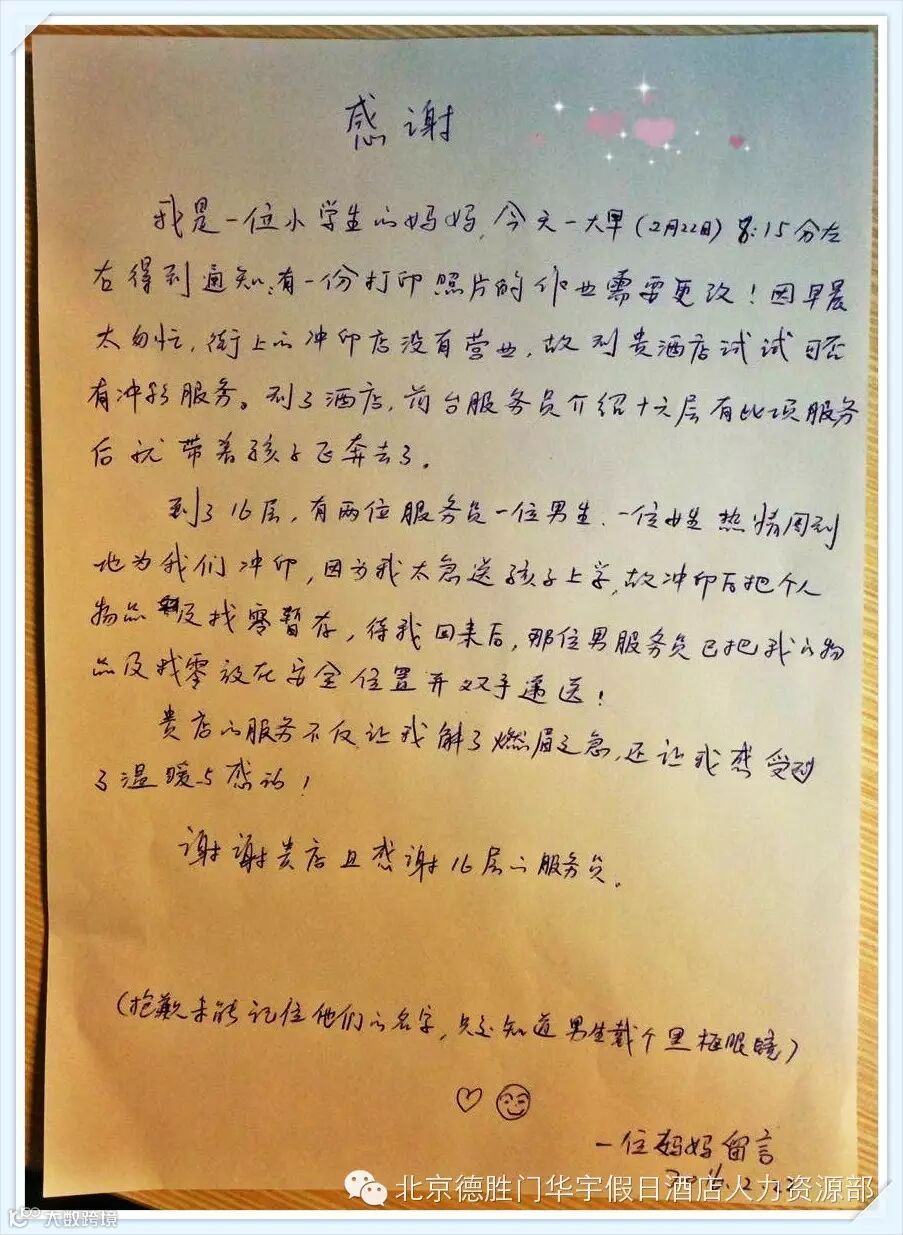 感谢
我是一位小学生的妈妈,今天一大早(2月22日)8:15分左
右得到通知:有一份打印照片的作业需要更改!因早晨
太匆忙,街上的冲印店没有营业,故到贵酒店试试可否
有冲影服务。到了酒店,前台服务员介绍十六层有此项服务
后就带着孩子飞奔去了。
到了16层,有两位服务员一位男生、一位女生热情周到
地为我们冲印,因为我太急送孩子上学,故冲印后把个人
物品及找零暂存,待我回来后,那位男服务员已把我的物
品及找零放在安全位置并双手递送!
贵店的服务不仅让我解了燃眉之急,还让我感受到
了温暖与感动!
谢谢贵店且感谢16层的服务员。
(抱歉未能记住他们的名字,只知道男生戴个黑框眼镜)
一位妈妈留言
北京德胜门华宇假日酒店人力资源部
大数跨境